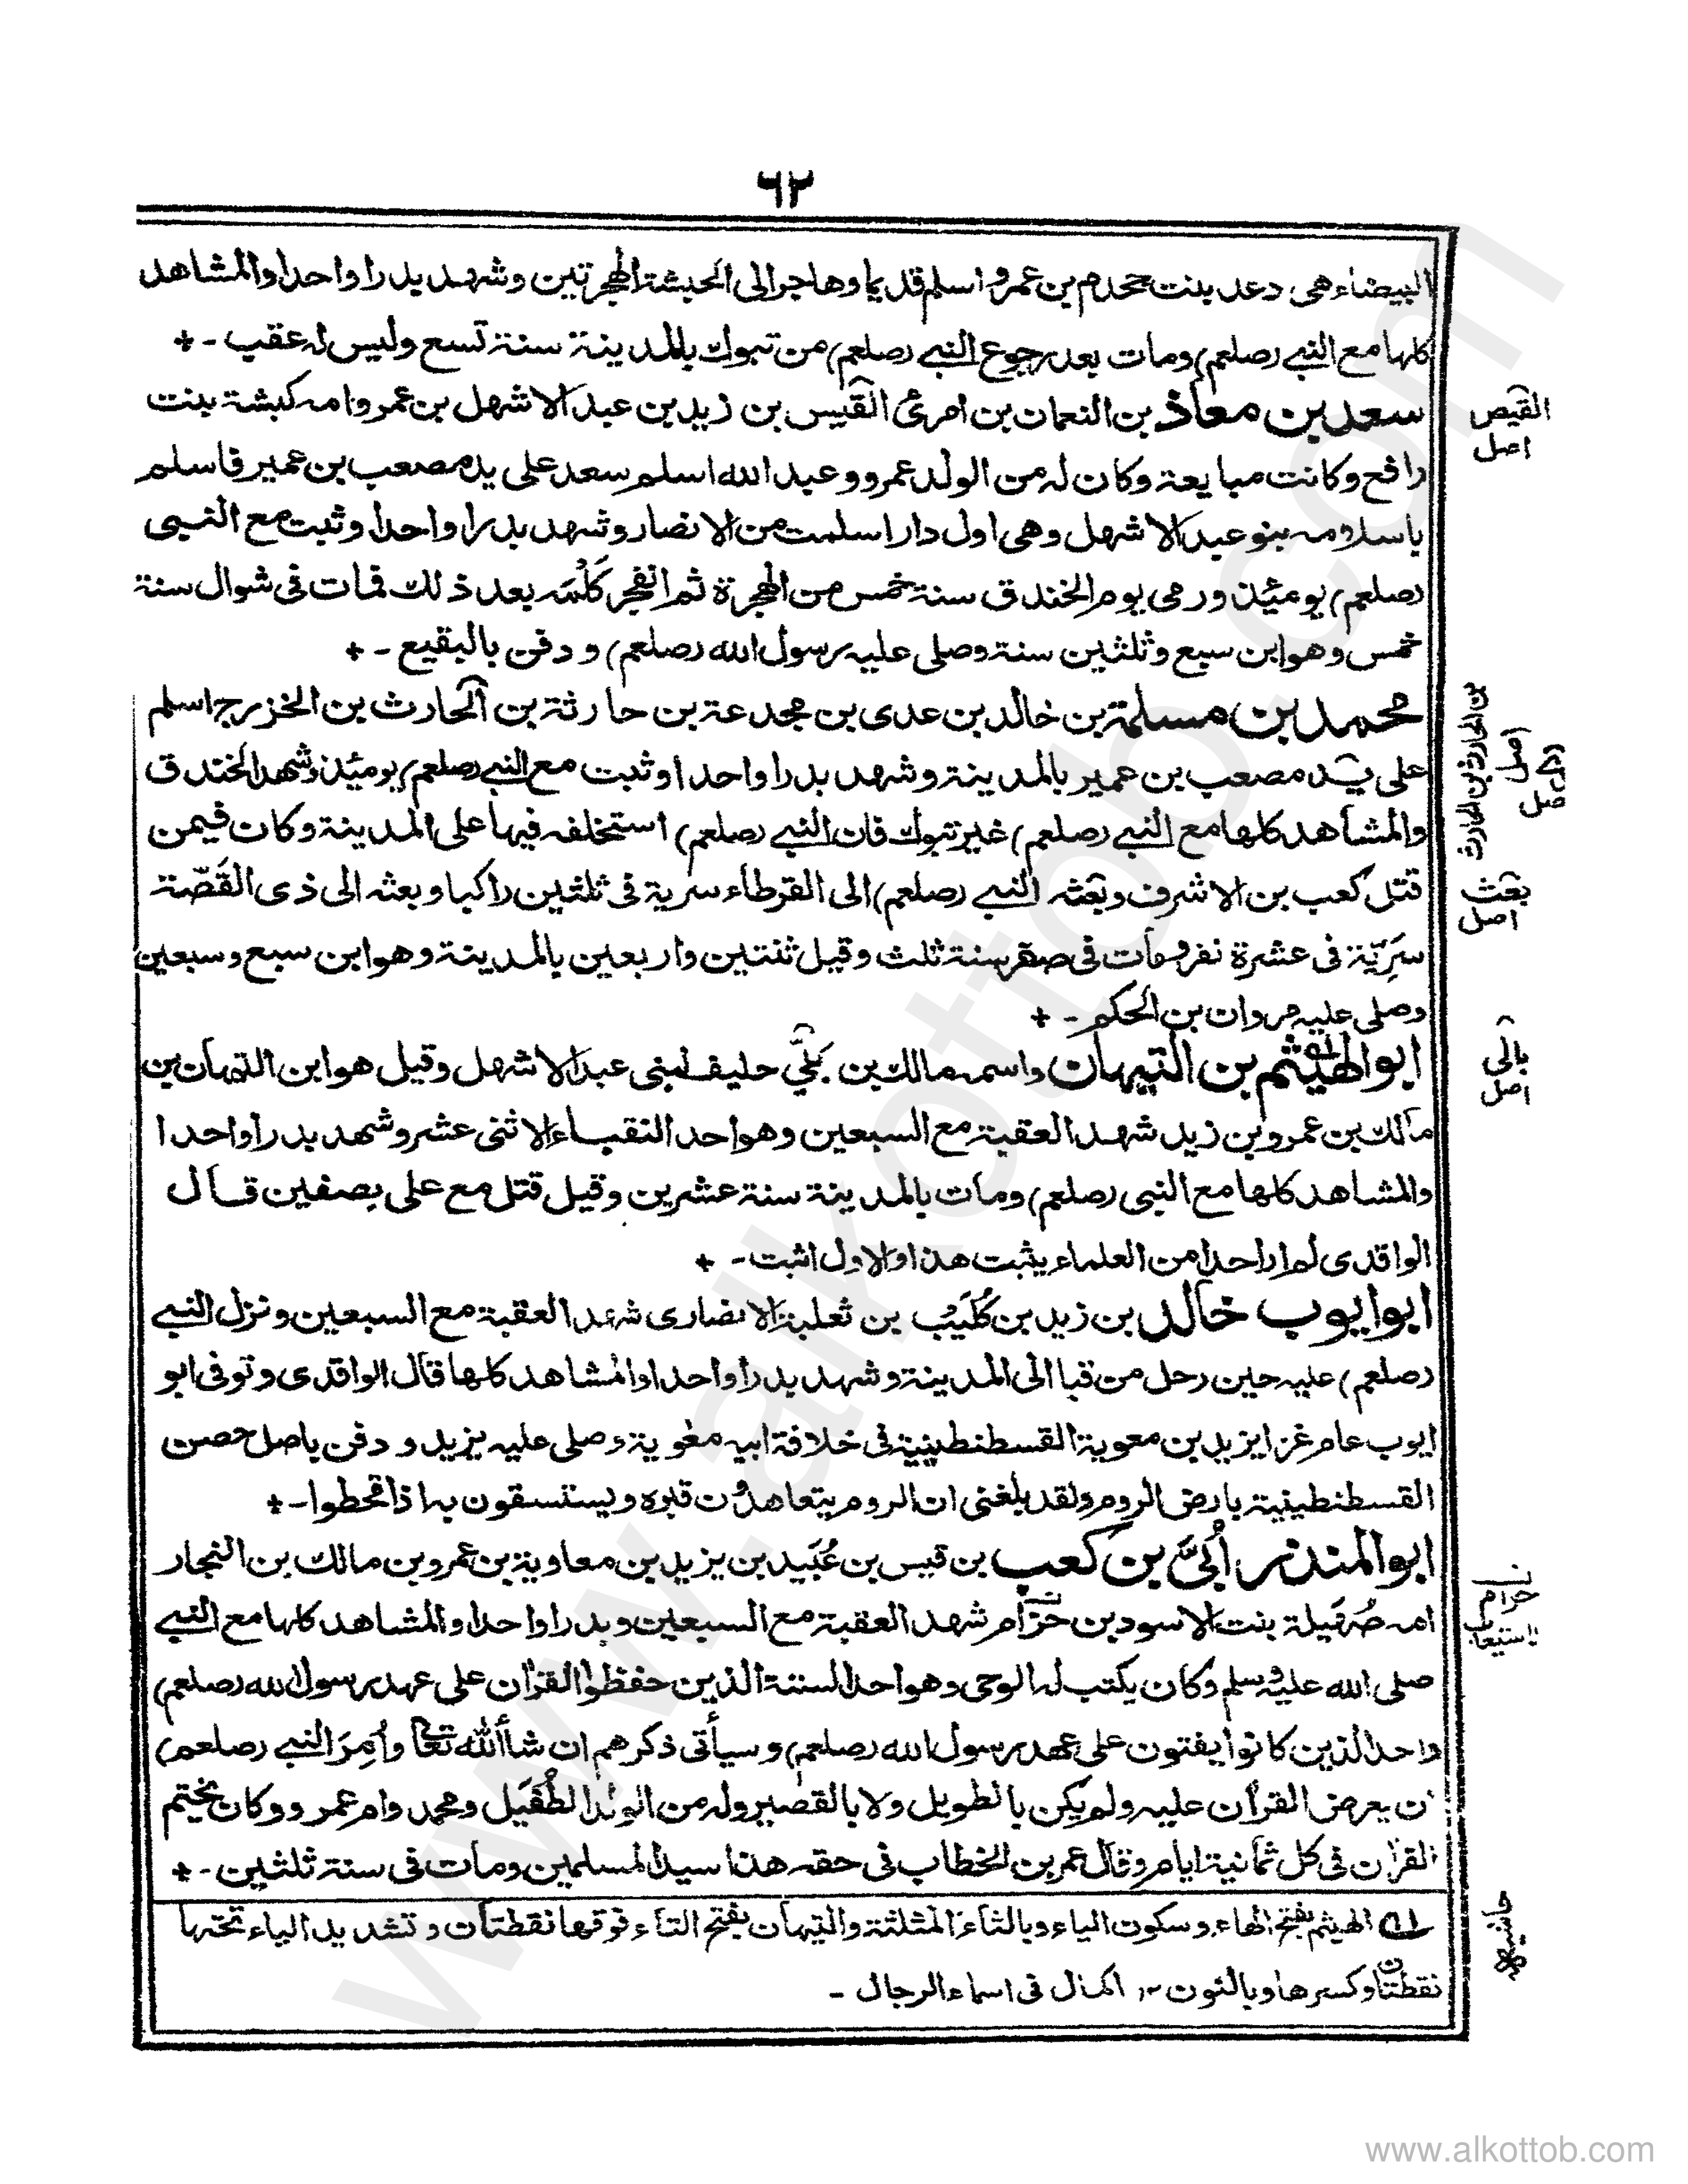 ٦٢
البيضاء هى دعد بنت جحدم بن عمرو اسلم قديما وهاجر الى الحبشة الهجرتين وشهد بدرا واحدا والمشاهد
كلها مع النبى (صلعم) ومات بعد رجوع النبى (صلعم) من تبوك بالمدينة سنة تسع وليس له عقب - +
سعد بن معاذ بن النعمان بن امرئ القيس بن زيد بن عبد الاشهل بن عمرو امه كبشة بنت
القيص
اصل
رافع وكانت مبايعة وكان له من الولد عمرو وعبد الله اسلم سعد على يد مصعب بن عمير فاسلم
باسلامه بنو عبد الاشهل وهى اول دار اسلمت من الانصار وشهد بدرا واحدا وثبت مع النبى
(صلعم) يومئذ ورمى يوم الخندق سنة خمس من الهجرة ثم انفجر كلمه بعد ذلك فمات فى شوال سنة
خمس وهو ابن سبع وثلثين سنة وصلى عليه رسول الله (صلعم) ودفن بالبقيع - +
محمد بن مسلمة بن خالد بن عدى بن مجدعة بن حارثة بن الحارث بن الخزرج اسلم
بن الحارث بن الحارث
اصل
على يد مصعب بن عمير بالمدينة وشهد بدرا واحدا وثبت مع النبى (صلعم) يومئذ وشهد الخندق
والمشاهد كلها مع النبى (صلعم) غير تبوك فان النبى (صلعم) استخلفه فيها على المدينة وكان فيمن
قتل كعب بن الاشرف وبعثه النبى (صلعم) الى القرطاء سرية فى ثلثين راكبا وبعثه الى ذى القَصّة
بعث
اصل
سَرِيّة فى عشرة نفر ومات فى صفر سنة ثلث وقيل ثنتين واربعين بالمدينة وهو ابن سبع وسبعين
وصلى عليه مروان بن الحكم - +
ابو الهيثم بن التيهان واسمه مالك بن بَلّي حليف لبنى عبد الاشهل وقيل هو ابن التيهان بن
بالى
اصل
مالك بن عمرو بن زيد شهد العقبة مع السبعين وهو احد النقباء الاثنى عشر وشهد بدرا واحدا
والمشاهد كلها مع النبى (صلعم) ومات بالمدينة سنة عشرين وقيل قتل مع على بصفين قال
الواقدى لم ار احدا من العلماء يثبت هذا والاول اثبت - +
ابو ايوب خالد بن زيد بن كُلَيْب بن ثعلبة الانصارى شهد العقبة مع السبعين ونزل النبى
(صلعم) عليه حين رحل من قبا الى المدينة وشهد بدرا واحدا والمشاهد كلها قال الواقدى وتوفى ابو
ايوب عام غزا يزيد بن معوية القسطنطينية فى خلافة ابيه معوية وصلى عليه يزيد ودفن باصل حصن
القسطنطينية بارض الروم ولقد بلغنى ان الروم يتعاهدون قبره ويستسقون به اذا قحطوا - +
ابو المنذر أُبَىّ بن كعب بن قيس بن عُبَيد بن يزيد بن معاوية بن عمرو بن مالك بن النجار
امه صُهَيلة بنت الاسود بن حرام شهد العقبة مع السبعين وبدرا واحدا والمشاهد كلها مع النبى
حرام
استيعاب
صلى الله عليه وسلم وكان يكتب له الوحى وهو احد الستة الذين حفظوا القرآن على عهد رسول الله (صلعم)
واحد الذين كانوا يفتون على عهد رسول الله (صلعم) وسيأتى ذكرهم ان شاء الله تعا وأُمِرَ النبى (صلعم)
ان يعرض القرآن عليه ولم يكن بالطويل ولا بالقصير وله من الولد الطُفَيل ومحمد وام عمرو وكان يختم
القرآن فى كل ثمانية ايام وقال عمر بن الخطاب فى حقه هذا سيد المسلمين ومات فى سنة ثلثين - +
حاشيه
الهيثم بفتح الهاء وسكون الياء وبالثاء المثلثة والتيهان بفتح التاء فوقها نقطتان وتشديد الياء تحتها
نقطتان وكسرها وبالنون ١٢ اكمال فى اسماء الرجال -
www.alkottob.com
www.alkottob.com